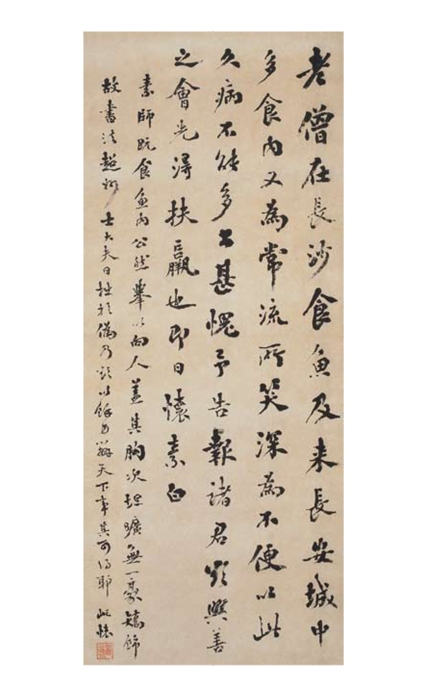 老僧在長沙食魚及来長安城中
多食肉又為常流所笑深為不便以此
久病不能多書甚愧予告報諸君欲興善
之會先得扶羸也即日懷素白
素師既食魚肉公然舉以向人蓋其胸次坦曠無一豪矯飾
故書法超妙士大夫日拙於偽乃欲以天下事其可得耶